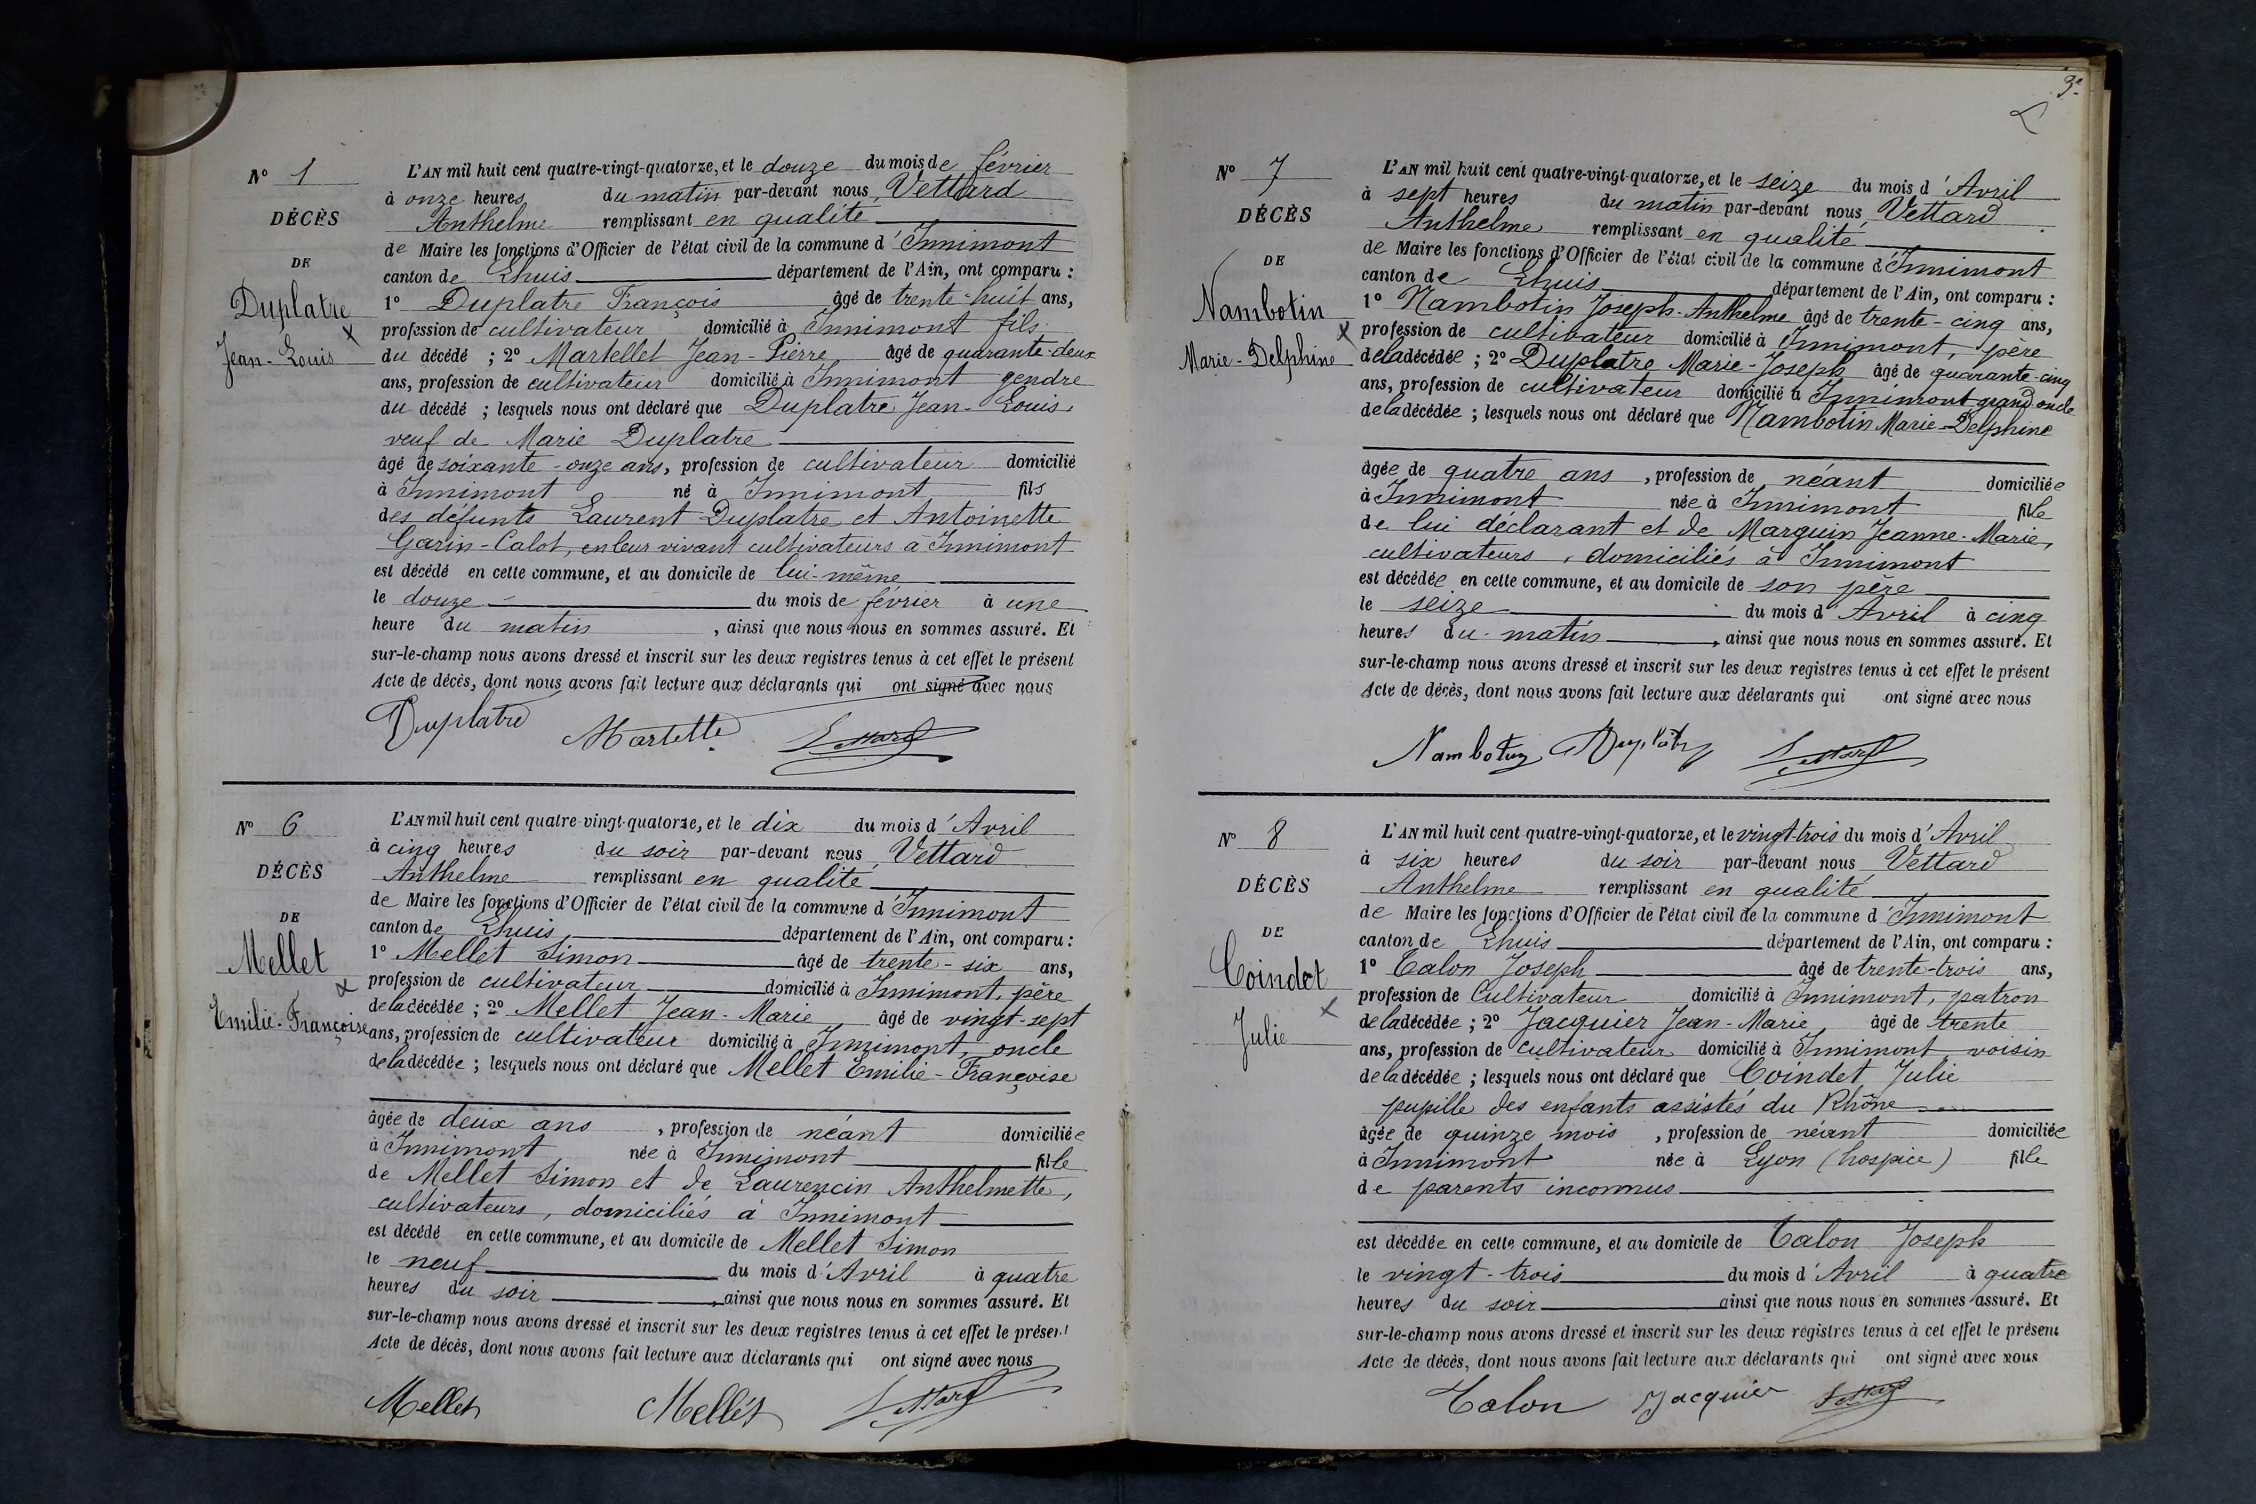 Nº 1
DÉCÈS
DE
Duplatre
Jean-Louis
L'AN mil huit cent quatre-vingt-quatorze, et le douze du mois de février
à onze heures du matin par-devant nous Vettard
Anthelme remplissant en qualité
de Maire les fonctions d'Officier de l'état civil de la commune d'Innimont
canton de Lhuis département de l'Ain, ont comparu :
1º Duplatre François âgé de trente-huit ans,
profession de cultivateur domicilié à Innimont fils
du décédé ; 2º Martellet Jean-Pierre âgé de quarante-deux
ans, profession de cultivateur domicilié à Innimont gendre
du décédé ; lesquels nous ont déclaré que Duplatre Jean-Louis,
veuf de Marie Duplatre
âgé de soixante-onze ans, profession de cultivateur domicilié
à Innimont né à Innimont fils
des défunts Laurent Duplatre et Antoinette
Garin-Calot, en leur vivant cultivateurs à Innimont
est décédé en cette commune, et au domicile de lui-même
le douze du mois de février à une
heure du matin, ainsi que nous nous en sommes assuré. Et
sur-le-champ nous avons dressé et inscrit sur les deux registres tenus à cet effet le présent
Acte de décès, dont nous avons fait lecture aux déclarants qui ont signé avec nous
Duplatre Martelle Vettard
Nº 6
DÉCÈS
DE
Mellet
Emilie-Françoise
L'AN mil huit cent quatre-vingt-quatorze, et le dix du mois d'Avril
à cinq heures du soir par-devant nous Vettard
Anthelme remplissant en qualité
de Maire les fonctions d'Officier de l'état civil de la commune d'Innimont
canton de Lhuis département de l'Ain, ont comparu :
1º Mellet Simon âgé de trente-six ans,
profession de cultivateur domicilié à Innimont, père
de la décédée ; 2º Mellet Jean-Marie âgé de vingt-sept
ans, profession de cultivateur domicilié à Innimont, oncle
de la décédée ; lesquels nous ont déclaré que Mellet Emilie-Françoise
âgée de deux ans, profession de néant domiciliée
à Innimont née à Innimont fille
de Mellet Simon et de Laurencin Anthelmette,
cultivateurs, domiciliés à Innimont
est décédé en cette commune, et au domicile de Mellet Simon
le neuf du mois d'Avril à quatre
heures du soir, ainsi que nous nous en sommes assuré. Et
sur-le-champ nous avons dressé et inscrit sur les deux registres tenus à cet effet le présent
Acte de décès, dont nous avons fait lecture aux déclarants qui ont signé avec nous
Mellet Mellet Vettard
3e
Nº 7
DÉCÈS
DE
Nambotin
Marie-Delphine
L'AN mil huit cent quatre-vingt-quatorze, et le seize du mois d'Avril
à sept heures du matin par-devant nous Vettard
Anthelme remplissant en qualité
de Maire les fonctions d'Officier de l'état civil de la commune d'Innimont
canton de Lhuis département de l'Ain, ont comparu :
1º Nambotin Joseph-Anthelme âgé de trente-cinq ans,
profession de cultivateur domicilié à Innimont, père
de la décédée ; 2º Duplatre Marie-Joseph âgé de quarante-cinq
ans, profession de cultivateur domicilié à Innimont grand oncle
de la décédée ; lesquels nous ont déclaré que Nambotin Marie-Delphine
âgée de quatre ans, profession de néant domiciliée
à Innimont née à Innimont fille
de lui déclarant et de Marguin Jeanne-Marie,
cultivateurs, domiciliés à Innimont
est décédée en cette commune, et au domicile de son père
le seize du mois d'Avril à cinq
heures du matin, ainsi que nous nous en sommes assuré. Et
sur-le-champ nous avons dressé et inscrit sur les deux registres tenus à cet effet le présent
Acte de décès, dont nous avons fait lecture aux déclarants qui ont signé avec nous
Nambotin Duplâtre Vettard
Nº 8
DÉCÈS
DE
Coindet
Julie
L'AN mil huit cent quatre-vingt-quatorze, et le vingt-trois du mois d'Avril
à six heures du soir par-devant nous Vettard
Anthelme remplissant en qualité
de Maire les fonctions d'Officier de l'état civil de la commune d'Innimont
canton de Lhuis département de l'Ain, ont comparu :
1º Calon Joseph âgé de trente-trois ans,
profession de Cultivateur domicilié à Innimont, patron
de la décédée ; 2º Jacquier Jean-Marie âgé de trente
ans, profession de cultivateur domicilié à Innimont, voisin
de la décédée ; lesquels nous ont déclaré que Coindet Julie
pupille des enfants assistés du Rhône
âgée de quinze mois, profession de néant domiciliée
à Innimont née à Lyon (hospice) fille
de parents inconnus
est décédée en cette commune, et au domicile de Calon Joseph
le vingt-trois du mois d'Avril à quatre
heures du soir ainsi que nous nous en sommes assuré. Et
sur-le-champ nous avons dressé et inscrit sur les deux registres tenus à cet effet le présent
Acte de décès, dont nous avons fait lecture aux déclarants qui ont signé avec nous
Calon Jacquier Vettard